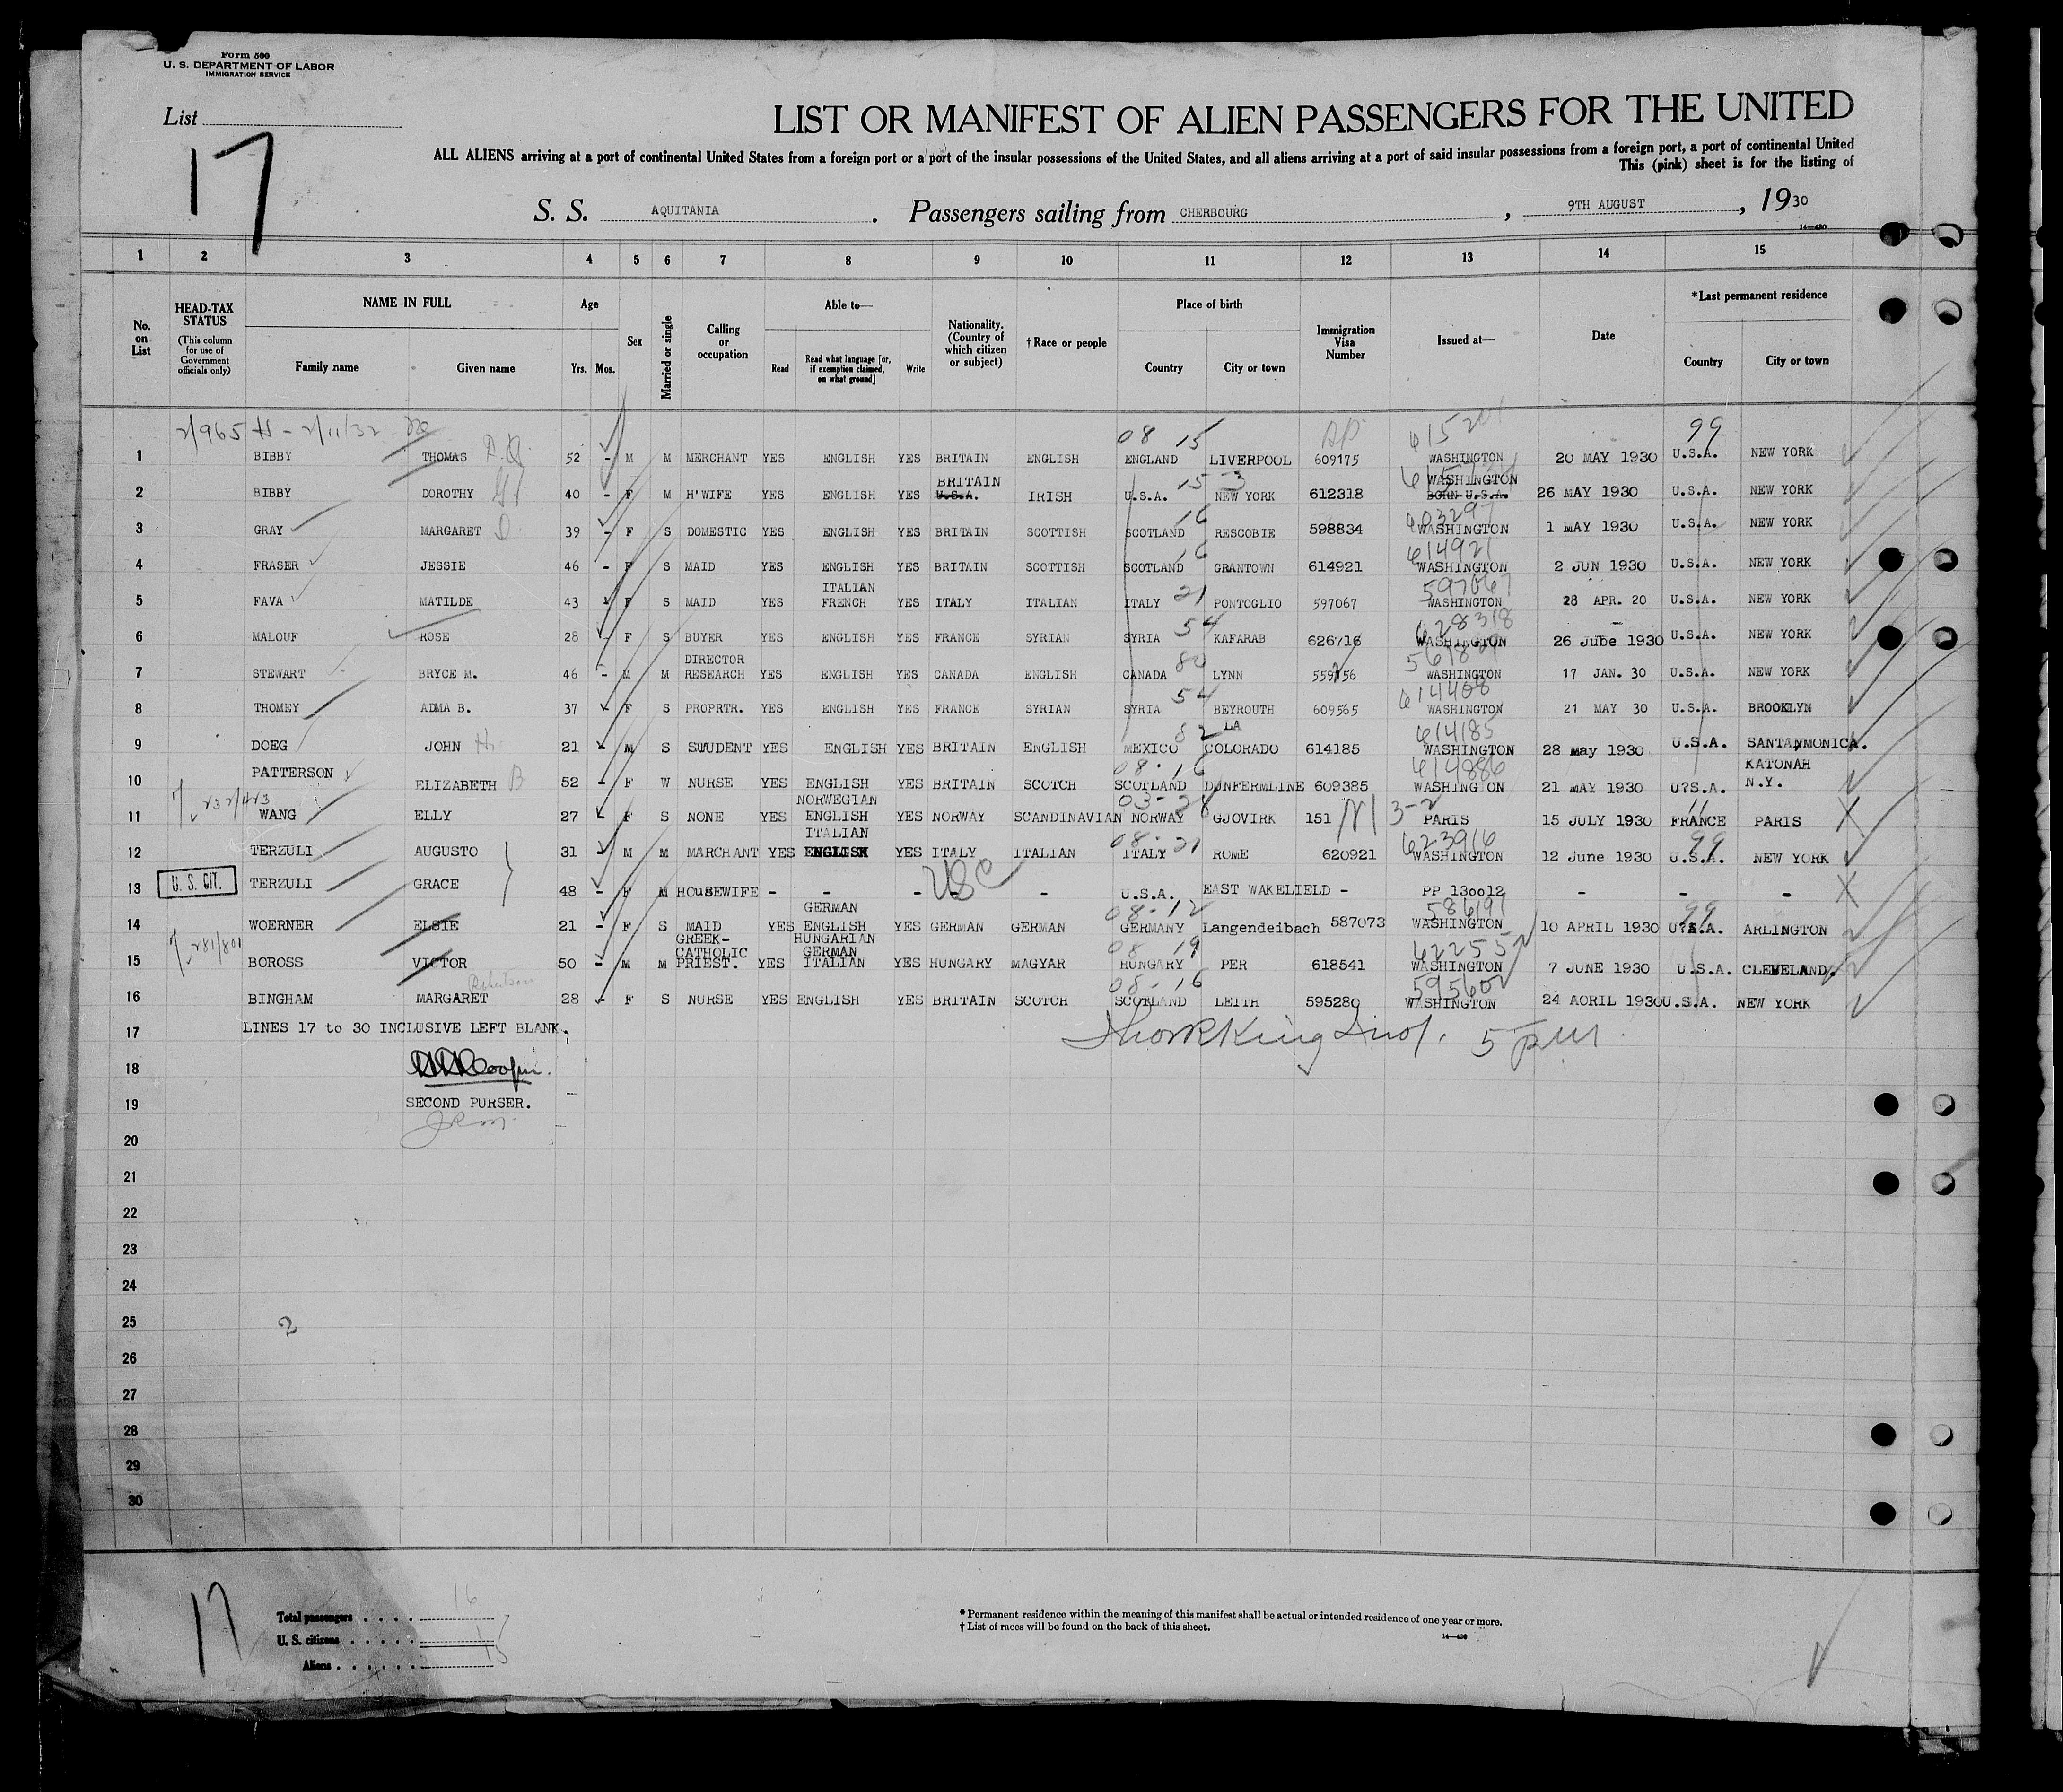 Form 500
U. S. DEPARTMENT OF LABOR
IMMIGRATION SERVICE
List
17
LIST OR MANIFEST OF ALIEN PASSENGERS FOR THE UNITED
ALL ALIENS arriving at a port of continental United States from a foreign port or a port of the insular possessions of the United States, and all aliens arriving at a port of said insular possessions from a foreign port, a port of continental United
This (pink) sheet is for the listing of
S. S. AQUITANIA . Passengers sailing from CHERBOURG , 9TH AUGUST , 1930
14—430
1 2 3 4 5 6 7 8 9 10 11 12 13 14 15
No. on List
HEAD-TAX STATUS (This column for use of Government officials only)
NAME IN FULL Family name Given name
Age Yrs. Mos.
Sex
Married or single
Calling or occupation
Able to— Read Read what language [or, if exemption claimed, on what ground] Write
Nationality. (Country of which citizen or subject)
†Race or people
Place of birth Country City or town
Immigration Visa Number
Issued at—
Date
*Last permanent residence Country City or town
2/965 2/11/32 08 15 99
1 BIBBY THOMAS 52 - M M MERCHANT YES ENGLISH YES BRITAIN ENGLISH ENGLAND LIVERPOOL 609175 WASHINGTON 20 MAY 1930 U.S.A. NEW YORK
BRITAIN 15-3 WASHINGTON
2 BIBBY DOROTHY 40 - F M H'WIFE YES ENGLISH YES U.S.A. IRISH U.S.A. NEW YORK 612318 BORN U.S.A. 26 MAY 1930 U.S.A. NEW YORK
16 603297
3 GRAY MARGARET 39 - F S DOMESTIC YES ENGLISH YES BRITAIN SCOTTISH SCOTLAND RESCOBIE 598834 WASHINGTON 1 MAY 1930 U.S.A. NEW YORK
16 614921
4 FRASER JESSIE 46 - F S MAID YES ENGLISH YES BRITAIN SCOTTISH SCOTLAND GRANTOWN 614921 WASHINGTON 2 JUN 1930 U.S.A. NEW YORK
ITALIAN 21 597067
5 FAVA MATILDE 43 F S MAID YES FRENCH YES ITALY ITALIAN ITALY PONTOGLIO 597067 WASHINGTON 28 APR. 20 U.S.A. NEW YORK
54 628318
6 MALOUF ROSE 28 - F S BUYER YES ENGLISH YES FRANCE SYRIAN SYRIA KAFARAB 626716 WASHINGTON 26 Jube 1930 U.S.A. NEW YORK
DIRECTOR 80
7 STEWART BRYCE M. 46 - M M RESEARCH YES ENGLISH YES CANADA ENGLISH CANADA LYNN 559756 WASHINGTON 17 JAN. 30 U.S.A. NEW YORK
54 614408
8 THOMEY ADMA B. 37 - F S PROPRTR. YES ENGLISH YES FRANCE SYRIAN SYRIA BEYROUTH 609565 WASHINGTON 21 MAY 30 U.S.A. BROOKLYN
82 LA 614185
9 DOEG JOHN H. 21 - M S STUDENT YES ENGLISH YES BRITAIN ENGLISH MEXICO COLORADO 614185 WASHINGTON 28 may 1930 U.S.A. SANTA MONICA.
08-16 614886 KATONAH
10 PATTERSON ELIZABETH B 52 - F W NURSE YES ENGLISH YES BRITAIN SCOTCH SCOTLAND DUNFERMLINE 609385 WASHINGTON 21 MAY 1930 U?S.A. N.Y.
NORWEGIAN
11 WANG ELLY 27 - F S NONE YES ENGLISH YES NORWAY SCANDINAVIAN NORWAY GJOVIRK 151 PARIS 15 JULY 1930 FRANCE PARIS
ITALIAN 08-21 623916 99
12 TERZULI AUGUSTO 31 - M M MARCHANT YES ENGLISH YES ITALY ITALIAN ITALY ROME 620921 WASHINGTON 12 June 1930 U.S.A. NEW YORK
U. S. CIT.
13 TERZULI GRACE 48 - F M HOUSEWIFE - - USC - U.S.A. EAST WAKELIELD - PP 130012 - - -
GERMAN 08-12 586197 99
14 WOERNER ELSIE 21 - F S MAID YES ENGLISH YES GERMAN GERMAN GERMANY Langendeibach 587073 WASHINGTON 10 APRIL 1930 U?S.A. ARLINGTON
GREEK-CATHOLIC HUNGARIAN GERMAN 08 19
15 BOROSS VICTOR 50 - M M PRIEST. YES ITALIAN YES HUNGARY MAGYAR HUNGARY PER 618541 WASHINGTON 7 JUNE 1930 U.S.A. CLEVELAND.
08-16 595602
16 BINGHAM MARGARET 28 - F S NURSE YES ENGLISH YES BRITAIN SCOTCH SCOTLAND LEITH 595280 WASHINGTON 24 AORIL 1930 U.S.A. NEW YORK
17 LINES 17 to 30 INCLUSIVE LEFT BLANK.
5 pm
18
19 SECOND PURSER.
20
21
22
23
24
25
2
26
27
28
29
30
17
Total passengers 16
U. S. citizens 1
Aliens 15
* Permanent residence within the meaning of this manifest shall be actual or intended residence of one year or more.
† List of races will be found on the back of this sheet.
14—430